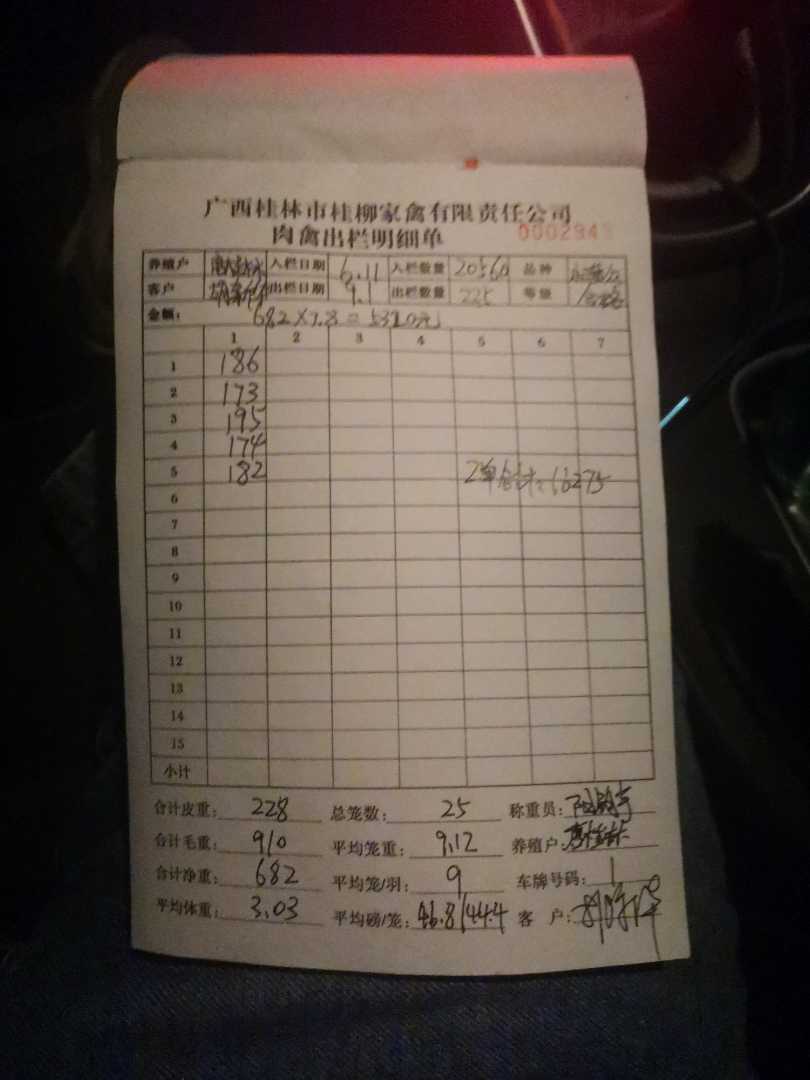 广西桂林市桂柳家禽有限责任公司
肉禽出栏明细单 000294
养殖户 入栏日期 6.11 入栏数量 20560 品种
客户 出栏日期 9.1 出栏数量 225 等级 合格
金额: 682×7.8=5320元
1 2 3 4 5 6 7
1 186
2 173
3 195
4 174
5 182 2单合计:16275
6
7
8
9
10
11
12
13
14
15
小计
合计皮重: 228 总笼数: 25 称重员:
合计毛重: 910 平均笼重: 9.12 养殖户:
合计净重: 682 平均笼/羽: 9 车牌号码: 1
平均体重: 3.03 平均磅/笼: 46.8/44.4 客户: